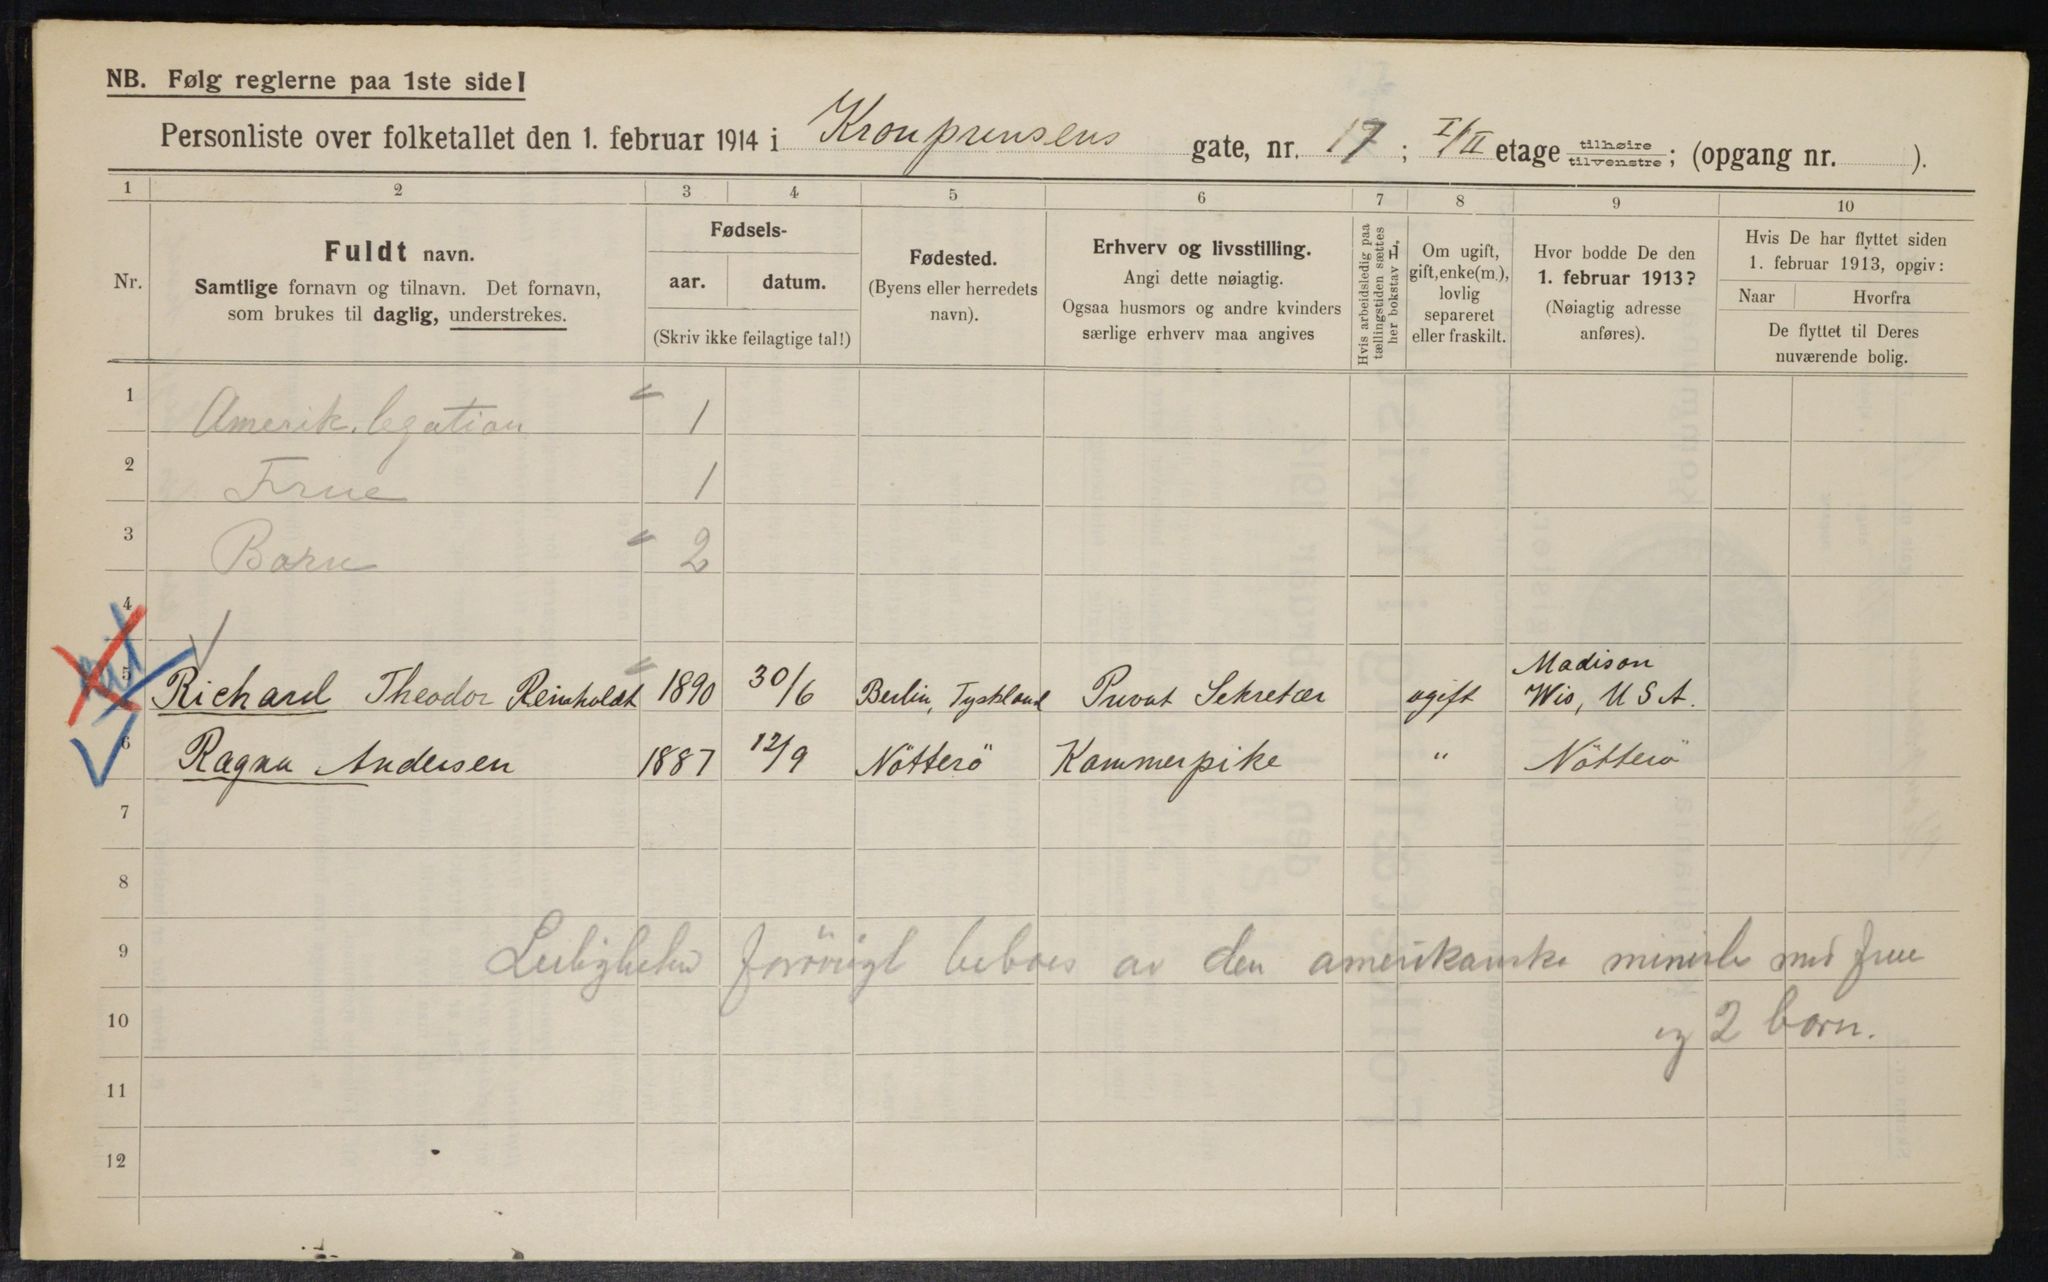 NB. Følg reglerne paa 1ste side!
Personliste over folketallet den 1. februar 1914 i Kronprinsens gate, nr. 17; I/II etage tilhøire tilvenstre; (opgang nr. ).
1 2 3 4 5 6 7 8 9 10
Nr.
Fuldt navn.
Samtlige fornavn og tilnavn. Det fornavn,
som brukes til daglig, understrekes.
Fødsels-
aar. datum.
(Skriv ikke feilagtige tal!)
Fødested.
(Byens eller herredets
navn).
Erhverv og livsstilling.
Angi dette nøiagtig.
Ogsaa husmors og andre kvinders
særlige erhverv maa angives
Hvis arbeidsledig paa
tællingstiden sættes
her bokstav L.
Om ugift,
gift, enke(m.),
lovlig
separeret
eller fraskilt.
Hvor bodde De den
1. februar 1913?
(Nøiagtig adresse
anføres).
Hvis De har flyttet siden
1. februar 1913, opgiv:
Naar Hvorfra
De flyttet til Deres
nuværende bolig.
1 Amerik. legation 1
2 Frue 1
3 Barn 2
4
5 Richard Theodor Reinholdt 1890 30/6 Berlin, Tyskland Privat Sekretær ugift Madison
Wis, U S A.
6 Ragna Andersen 1887 12/9 Nötterö Kammerpike " Nötterö
7
8
9 Leiligheten forövrigt beboes av den amerikanske minister med frue
10 og 2 barn.
11
12